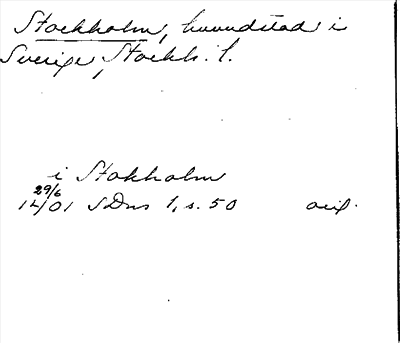 Stockholm, huvudstad i
Sverige, Stockh. l.
i Stokholm
29/6
1401 SDns 1, s. 50 orig.